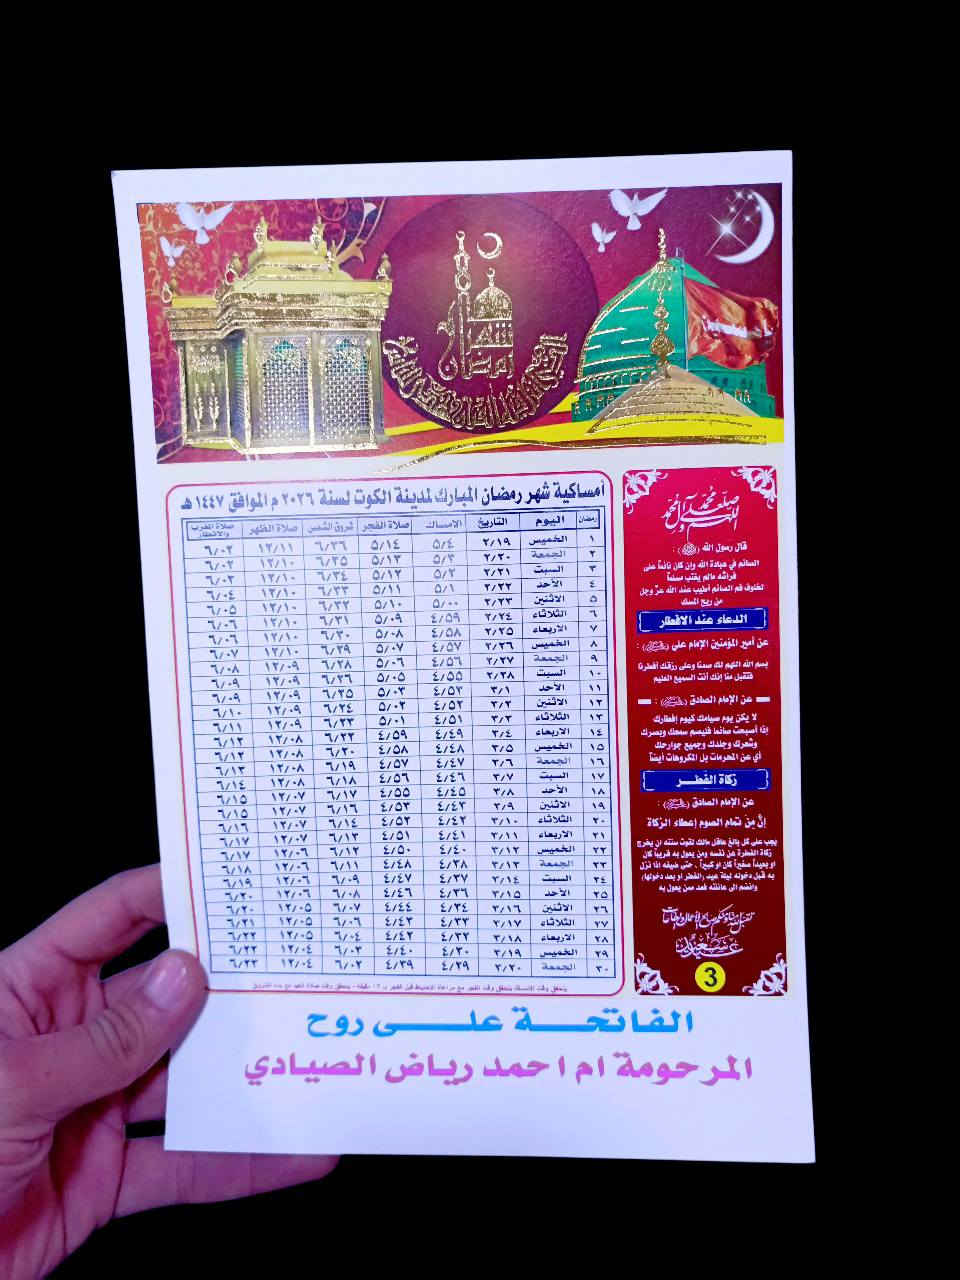 شهر
رمضان
أمساكية شهر رمضان المبارك لمدينة الكوت لسنة ٢٠٢٦ م الموافق ١٤٤٧ هـ
رمضان اليوم التاريخ الامساك صلاة الفجر شروق الشمس صلاة الظهر صلاة المغرب والافطار
١ الخميس ٢/١٩ ٥/٤ ٥/١٤ ٦/٣٦ ١٢/١١ ٦/٠٢
٢ الجمعة ٢/٢٠ ٥/٣ ٥/١٣ ٦/٣٥ ١٢/١٠ ٦/٠٢
٣ السبت ٢/٢١ ٥/٢ ٥/١٢ ٦/٣٤ ١٢/١٠ ٦/٠٣
٤ الأحد ٢/٢٢ ٥/١ ٥/١١ ٦/٣٣ ١٢/١٠ ٦/٠٤
٥ الاثنين ٢/٢٣ ٥/٠٠ ٥/١٠ ٦/٣٢ ١٢/١٠ ٦/٠٥
٦ الثلاثاء ٢/٢٤ ٤/٥٩ ٥/٠٩ ٦/٣١ ١٢/١٠ ٦/٠٦
٧ الاربعاء ٢/٢٥ ٤/٥٨ ٥/٠٨ ٦/٣٠ ١٢/١٠ ٦/٠٦
٨ الخميس ٢/٢٦ ٤/٥٧ ٥/٠٧ ٦/٢٩ ١٢/١٠ ٦/٠٧
٩ الجمعة ٢/٢٧ ٤/٥٦ ٥/٠٦ ٦/٢٨ ١٢/٠٩ ٦/٠٨
١٠ السبت ٢/٢٨ ٤/٥٥ ٥/٠٥ ٦/٢٦ ١٢/٠٩ ٦/٠٩
١١ الأحد ٣/١ ٤/٥٣ ٥/٠٣ ٦/٢٥ ١٢/٠٩ ٦/٠٩
١٢ الاثنين ٣/٢ ٤/٥٢ ٥/٠٢ ٦/٢٤ ١٢/٠٩ ٦/١٠
١٣ الثلاثاء ٣/٣ ٤/٥١ ٥/٠١ ٦/٢٣ ١٢/٠٩ ٦/١١
١٤ الاربعاء ٣/٤ ٤/٤٩ ٤/٥٩ ٦/٢٢ ١٢/٠٨ ٦/١٢
١٥ الخميس ٣/٥ ٤/٤٨ ٤/٥٨ ٦/٢٠ ١٢/٠٨ ٦/١٢
١٦ الجمعة ٣/٦ ٤/٤٧ ٤/٥٧ ٦/١٩ ١٢/٠٨ ٦/١٣
١٧ السبت ٣/٧ ٤/٤٦ ٤/٥٦ ٦/١٨ ١٢/٠٨ ٦/١٤
١٨ الأحد ٣/٨ ٤/٤٥ ٤/٥٥ ٦/١٧ ١٢/٠٧ ٦/١٥
١٩ الاثنين ٣/٩ ٤/٤٣ ٤/٥٣ ٦/١٦ ١٢/٠٧ ٦/١٥
٢٠ الثلاثاء ٣/١٠ ٤/٤٢ ٤/٥٢ ٦/١٤ ١٢/٠٧ ٦/١٦
٢١ الاربعاء ٣/١١ ٤/٤١ ٤/٥١ ٦/١٣ ١٢/٠٧ ٦/١٧
٢٢ الخميس ٣/١٢ ٤/٤٠ ٤/٥٠ ٦/١٢ ١٢/٠٦ ٦/١٧
٢٣ الجمعة ٣/١٣ ٤/٣٨ ٤/٤٨ ٦/١١ ١٢/٠٦ ٦/١٨
٢٤ السبت ٣/١٤ ٤/٣٧ ٤/٤٧ ٦/٠٩ ١٢/٠٦ ٦/١٩
٢٥ الأحد ٣/١٥ ٤/٣٦ ٤/٤٦ ٦/٠٨ ١٢/٠٦ ٦/٢٠
٢٦ الاثنين ٣/١٦ ٤/٣٤ ٤/٤٤ ٦/٠٧ ١٢/٠٥ ٦/٢٠
٢٧ الثلاثاء ٣/١٧ ٤/٣٣ ٤/٤٣ ٦/٠٦ ١٢/٠٥ ٦/٢١
٢٨ الاربعاء ٣/١٨ ٤/٣٢ ٤/٤٢ ٦/٠٤ ١٢/٠٥ ٦/٢٢
٢٩ الخميس ٣/١٩ ٤/٣٠ ٤/٤٠ ٦/٠٣ ١٢/٠٤ ٦/٢٢
٣٠ الجمعة ٣/٢٠ ٤/٢٩ ٤/٣٩ ٦/٠٢ ١٢/٠٤ ٦/٢٣
اللهم صل على محمد وآل محمد
قال رسول الله (ﷺ) :
الصائم في عبادة الله وإن كان نائماً على
فراشه مالم يغتب مسلماً
لخلوف فم الصائم أطيب عند الله عز وجل
من ريح المسك
الدعاء عند الافطار
عن أمير المؤمنين الإمام علي :
بسم الله اللهم لك صمنا وعلى رزقك أفطرنا
فتقبل منا إنك أنت السميع العليم
عن الإمام الصادق
لا يكن يوم صيامك كيوم إفطارك
إذا أصبحت صائما فليصم سمعك وبصرك
وشعرك وجلدك وجميع جوارحك
أي عن المحرمات بل المكروهات أيضاً
زكاة الفطر
عن الإمام الصادق :
إنَّ مِن تمام الصوم إعطاء الزكاة
يجب على كل بالغ عاقل مالك لقوت سنته ان يخرج
زكاة الفطرة عن نفسه ومن يعول به قريباً كان
او بعيداً صغيراً كان او كبيراً ، حتى ضيفه اذا نزل
به قبل دخوله ليلة عيد الفطر او بعد دخولها،
وانضم الى عائلته فعد ممن يعول به
3
الفاتحة على روح
المرحومة ام احمد رياض الصيادي